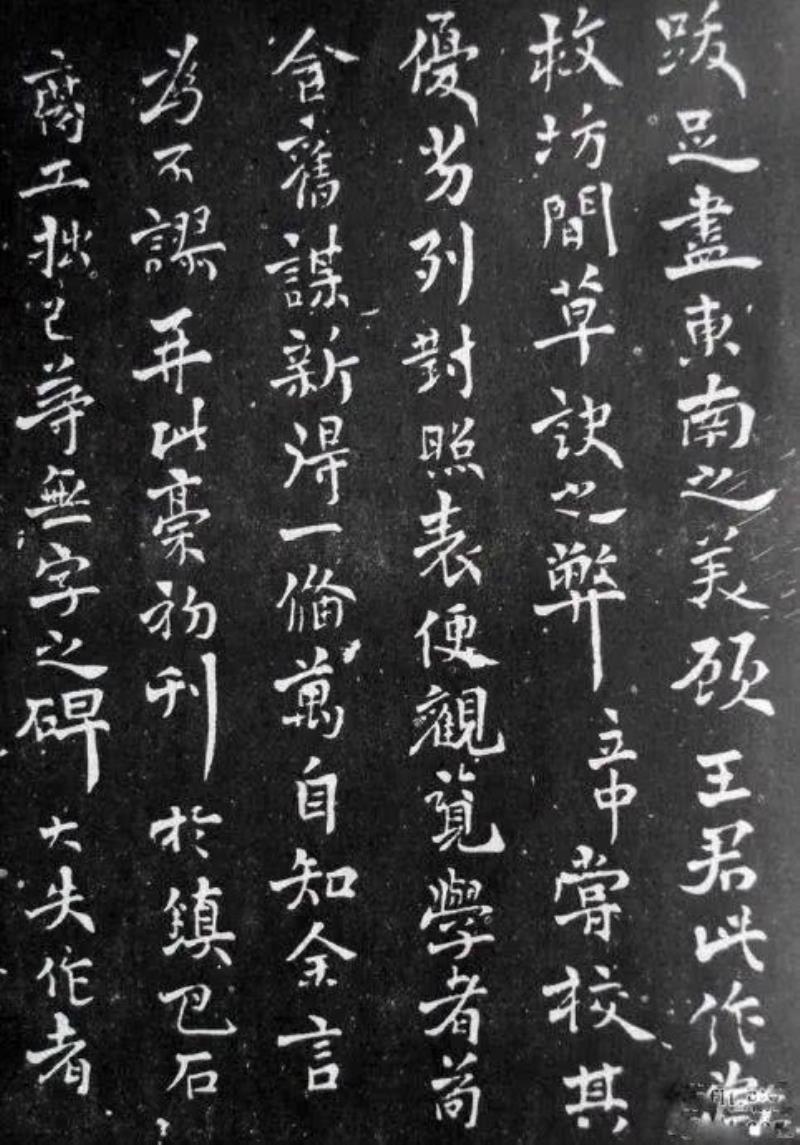 跋足盡東南之美顧王君此作
救坊間草訣之弊立中嘗校其
優劣列對照表便觀覽學者苟
舍舊謀新得一俻萬自知余言
為不謬再此稾初刊於鎮巴石
商工拙已等無字之碑大失作者